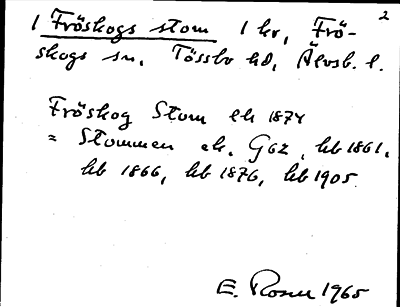 2
1 Fröskogs stom 1 kr, Frö-
skogs sn. Tössbo hd, Älvsb. l.
Fröskog Stom ek 1874
= Stommen ek. G62, hb 1861,
hb 1866, hb 1876, hb 1905.
E. Rosell 1965